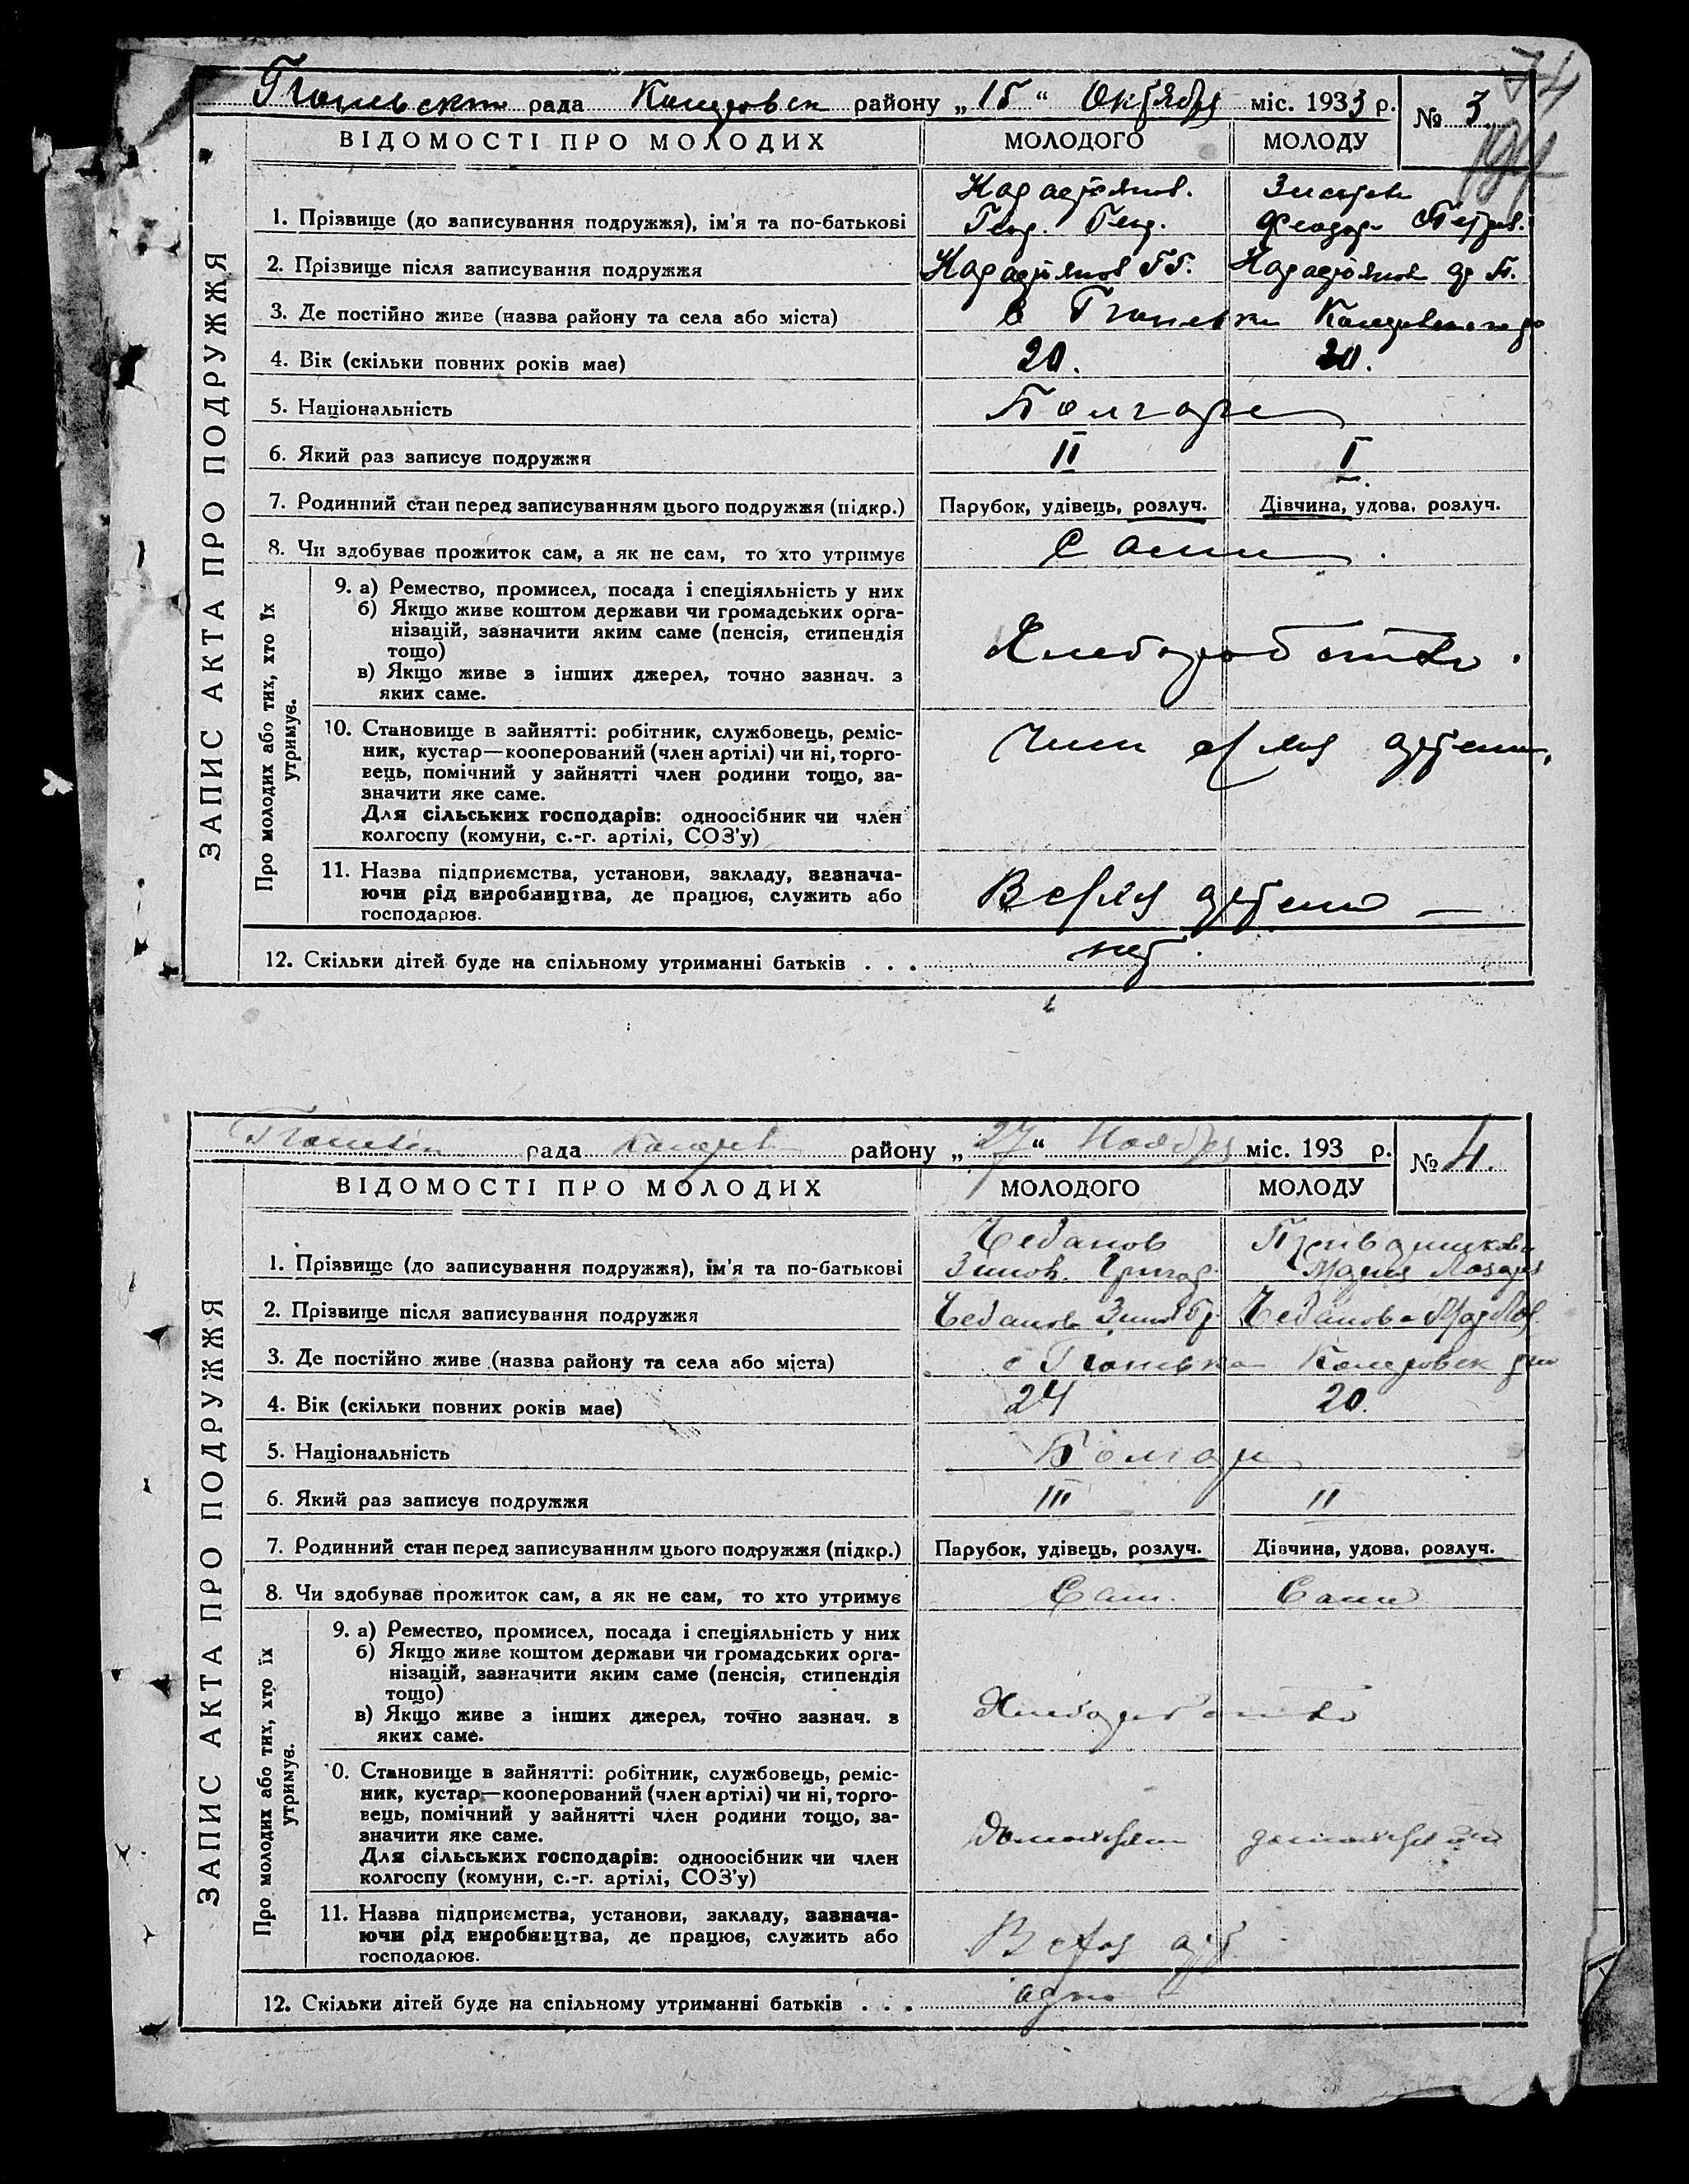 74
рада району „15“ Октября міс. 1933 р. № 3
ВІДОМОСТІ ПРО МОЛОДИХ МОЛОДОГО МОЛОДУ
ЗАПИС АКТА ПРО ПОДРУЖЖЯ
1. Прізвище (до записування подружжя), ім'я та по-батькові Геор. Геор. Петров.
2. Прізвище після записування подружжя
3. Де постійно живе (назва району та села або міста)
4. Вік (скільки повних років має) 20. 20.
5. Національність Болгаре
6. Який раз записує подружжя II I
7. Родинний стан перед записуванням цього подружжя (підкр.) Парубок, удівець, розлуч. Дівчина, удова, розлуч.
8. Чи здобуває прожиток сам, а як не сам, то хто утримує Сами
Про молодих або тих, хто їх утримує.
9. а) Ремество, промисел, посада і спеціяльність у них
б) Якщо живе коштом держави чи громадських орга-
нізацій, зазначити яким саме (пенсія, стипендія
тощо)
в) Якщо живе з інших джерел, точно зазнач. з
яких саме.
Хлеборобство
10. Становище в зайнятті: робітник, службовець, реміс-
ник, кустар—кооперований (член артілі) чи ні, торго-
вець, помічний у зайнятті член родини тощо, за-
значити яке саме.
Для сільських господарів: одноосібник чи член
колгоспу (комуни, с.-г. артілі, СОЗ'у)
11. Назва підприємства, установи, закладу, зазнача-
ючи рід виробництва, де працює, служить або
господарює.
12. Скільки дітей буде на спільному утриманні батьків . . . нет
рада району „27“ Ноября міс. 193 р. № 4.
ВІДОМОСТІ ПРО МОЛОДИХ МОЛОДОГО МОЛОДУ
ЗАПИС АКТА ПРО ПОДРУЖЖЯ
1. Прізвище (до записування подружжя), ім'я та по-батькові Чебанов Зинов. Григор. Мария Лазар
2. Прізвище після записування подружжя Чебанов Чебанова
3. Де постійно живе (назва району та села або міста)
4. Вік (скільки повних років має) 24 20.
5. Національність Болгаре
6. Який раз записує подружжя III II
7. Родинний стан перед записуванням цього подружжя (підкр.) Парубок, удівець, розлуч. Дівчина, удова, розлуч.
8. Чи здобуває прожиток сам, а як не сам, то хто утримує Сам. Сама
Про молодих або тих, хто їх утримує.
9. а) Ремество, промисел, посада і спеціяльність у них
б) Якщо живе коштом держави чи громадських орга-
нізацій, зазначити яким саме (пенсія, стипендія
тощо)
в) Якщо живе з інших джерел, точно зазнач. з
яких саме.
Хлеборобство
0. Становище в зайнятті: робітник, службовець, реміс-
ник, кустар—кооперований (член артілі) чи ні, торго-
вець, помічний у зайнятті член родини тощо, за-
значити яке саме.
Для сільських господарів: одноосібник чи член
колгоспу (комуни, с.-г. артілі, СОЗ'у)
11. Назва підприємства, установи, закладу, зазнача-
ючи рід виробництва, де працює, служить або
господарює.
12. Скільки дітей буде на спільному утриманні батьків . . . одно